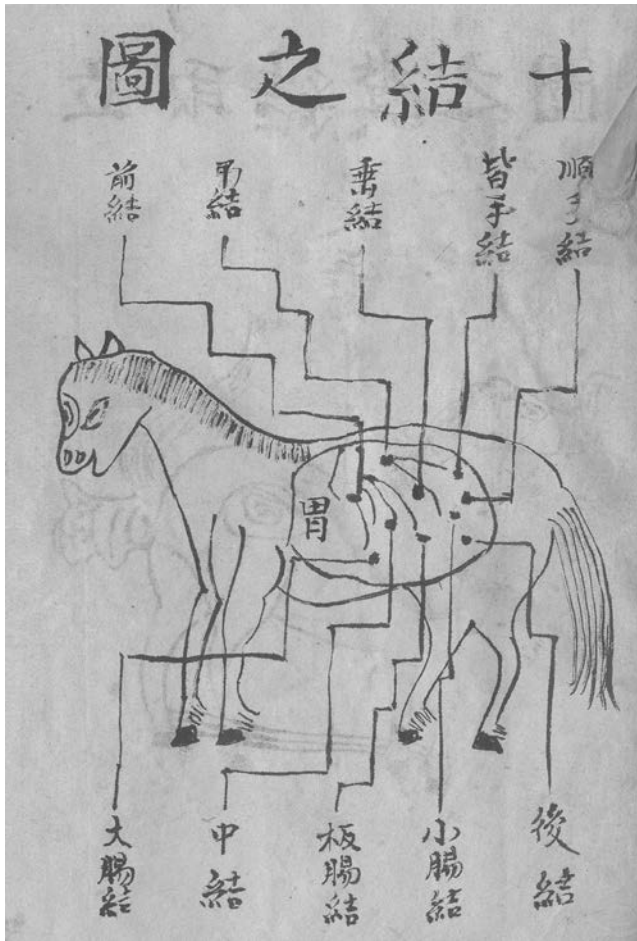 十結之圖
順手結
皆手結
垂結
吊結
前結
胃
後結
小腸結
板腸結
中結
大腸結